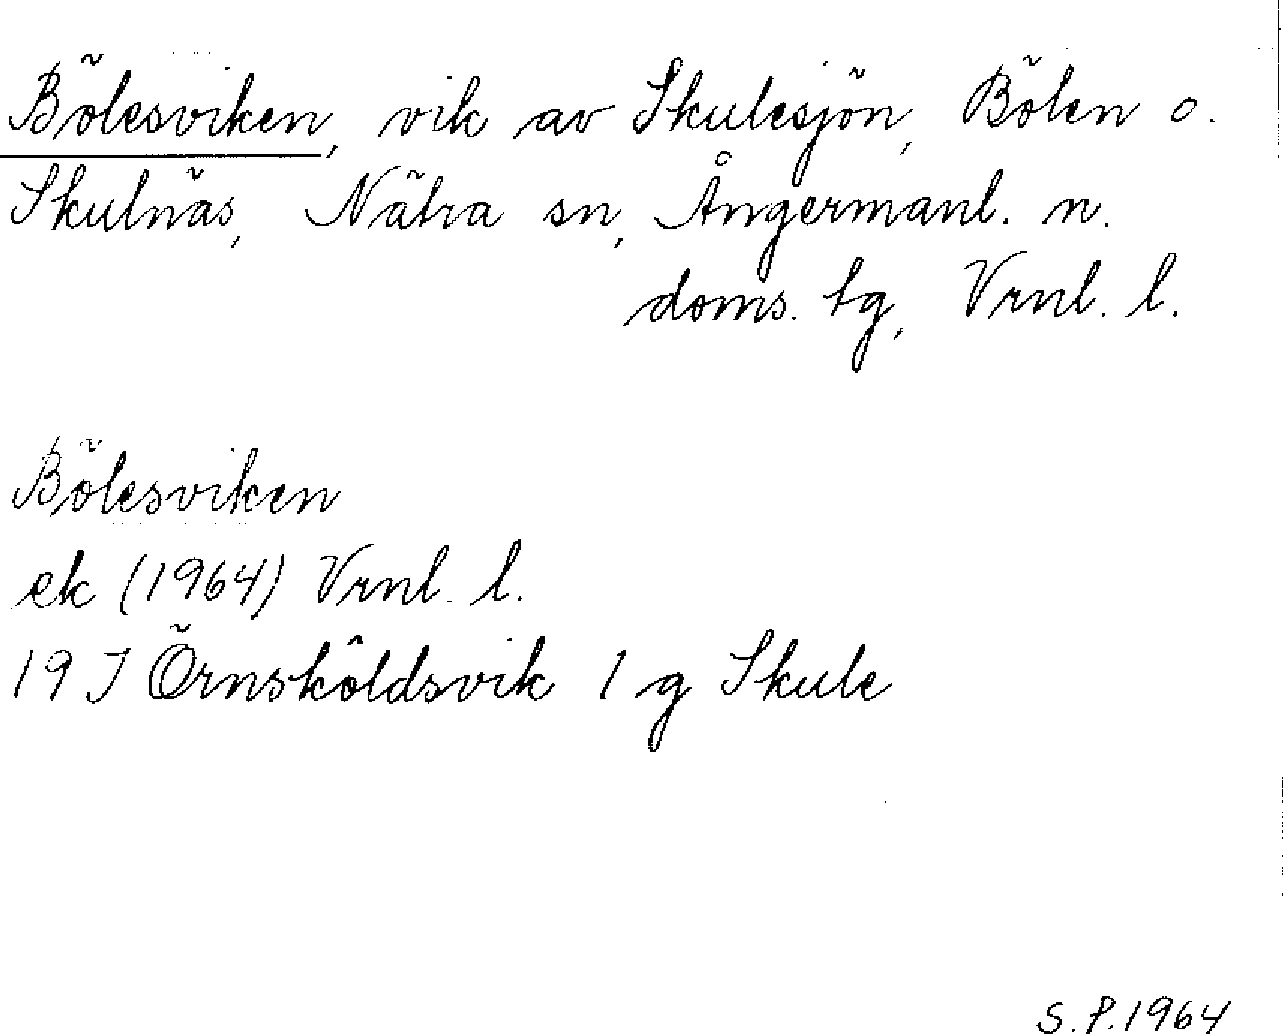 Bölesviken, vik av Skulesjön, Bölen o.
Skulnäs, Nätra sn, Ångermanl. n.
doms. tg, Vrnl. l.
Bölesviken
ek (1964) Vrnl. l.
19 J Örnsköldsvik 1 g Skule
S.P.1964